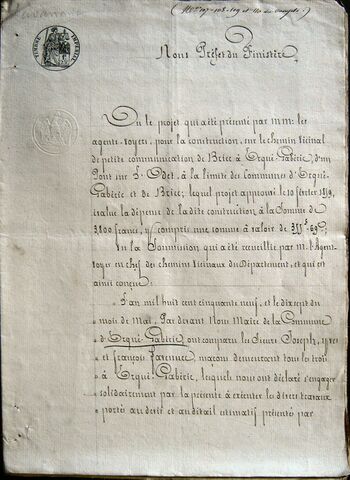 (Nos 107-108-109 et 110 du compte.)
TIMBRE IMPERIAL
Nous Préfet du Finistère,
Vu le projet qui a été présenté par M.M. les
agents-voyers, pour la construction, sur le chemin vicinal
de petite communication de Briec à Ergué-Gabéric, d'un
Pont sur l'Odet, à la limite des Communes d'Ergué-
Gabéric et de Briec; lequel projet approuvé le 10 février 1859,
évalue la dépense de la dite construction à la somme de
3,100 francs, y compris une somme à valoir de 355f 69c;
Vu la Soumission qui a été recueillie par M. l'Agent-
voyer en chef des chemins vicinaux du Département, et qui est
ainsi conçue:
" L'an mil huit cent cinquante neuf, et le dix sept du
" mois de Mai, Par devant Nous Maire de la Commune
" d'Ergué-Gabéric, ont comparu les Sieurs Joseph, Yves
" et François Karennec, maçons demeurant tous les trois
" à Ergué-Gabéric, lesquels nous ont déclaré s'engager
" solidairement par la présente à exécuter les divers travaux
" portés au devis et au détail estimatif présenté par